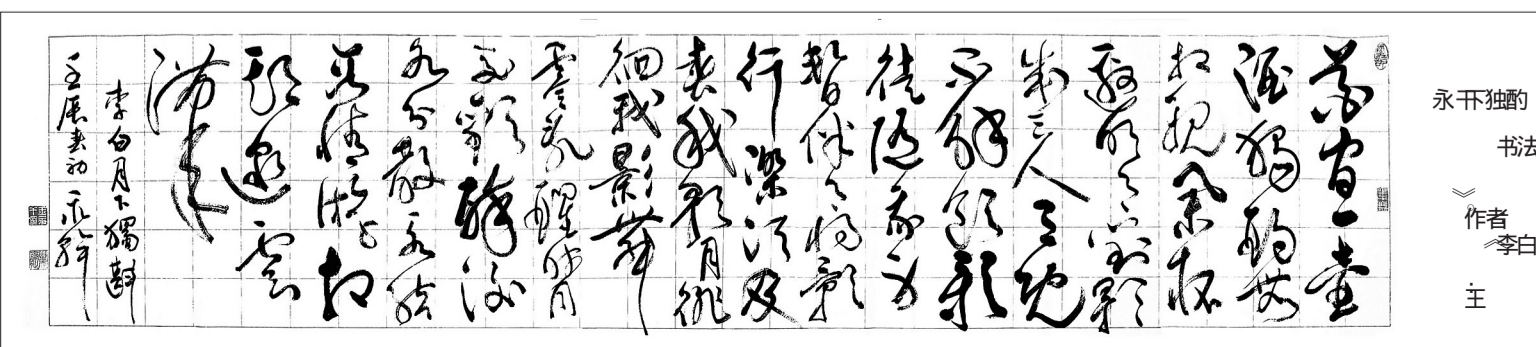 花間一壺
酒獨酌無
相親舉杯
邀明月對影
成三人月既
不解飲影
徒隨我身
暫伴月將影
行樂須及
春我歌月徘
徊我影舞
零亂醒時同
交歡醉後
各分散永結
無情游相
期邈雲
漢
李白月下獨斟
壬辰春初
永下独酌
书法
》
作者
《李白
王